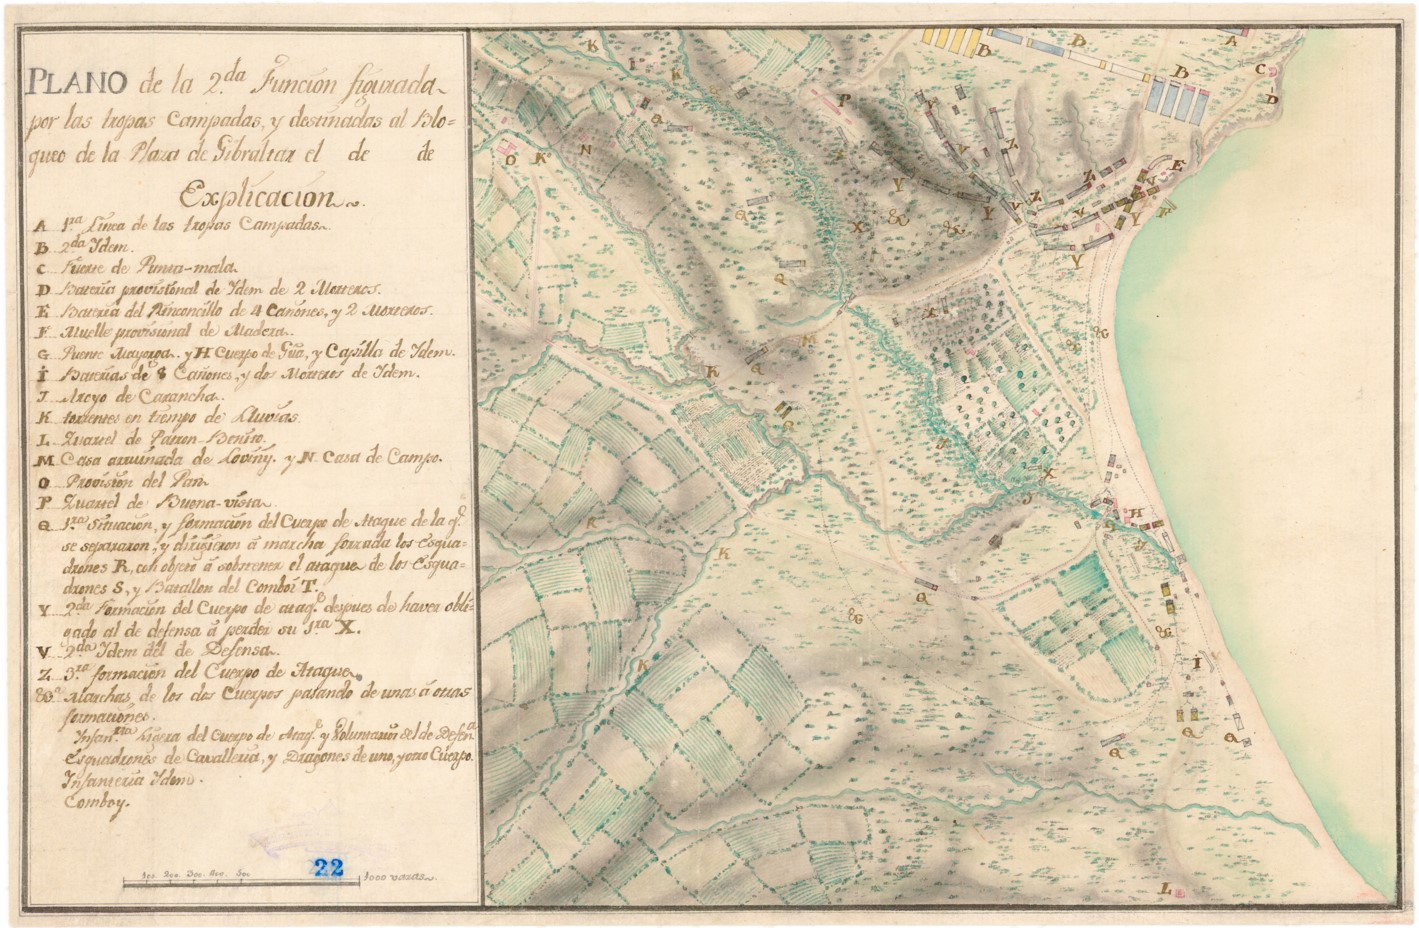 PLANO de la 2.da Función figurada
por las tropas Campadas, y destinadas al Blo=
queo de la Plaza de Gibraltar el de de
Explicacion
A 1.ra Línea de las tropas Campadas.
B 2.da Ydem.
C Fuerte de Punta-mala.
D Batería provisiónal de Ydem de 2 Morteros.
E Batería del Rinconcillo de 4 Cañones, y 2 Morteros.
F Muelle provisional de Madera.
G Puente Mayorga. y H Cuerpo de Gũa, y Capilla de Ydem.
I Baterías de 8 Cañones, y dos Morteros de Ydem.
J Aroyo de Carancha.
K torrentes en tiempo de Lluvias.
L Quartel de Patron-Benito.
M Casa arruinada de Loviny. y N Casa de Campo.
O Provisión del Pan
P Quartel de Buena-vista
Q 1.ra Situacion, y formación del Cuerpo de Ataque de la q.e
se separaron, y dirigieron à marcha forzada los Esqua-
drones R, con objeto à sobstener el ataque de los Esqua-
drones S, y Batallon del Comboi T.
Y 2.da Formación del Cuerpo de ataq.e despues de haver obli-
gado al de defensa à perder su 1.ra X.
V 2.da Ydem del de Defensa.
Z 3.ra formación del Cuerpo de Ataque.
&.a Marchas de los dos Cuerpos pasando de unas à otras
formaciones.
Infan.ria Ligera del Cuerpo de Ataq.e y Voluntarios del de Defen.a
Esquadrones de Cavalleria, y Dragones de uno, y otro Cuerpo.
Infanteria Ydem.
Comboy.
22
100. 200. 300. 400. 500 1000 varas.
K
B
D
B
A
C
D
I
K
&
P
Q
N
O
K
V
Z
Z
E
Y
X
&
Y
V
Z
V
V
Y
F
Q
&
Y
Q
X
&
M
K
Q
R
J
X
J
G
H
R
K
J
Q
&
&
K
I
Q
Q
Q
L